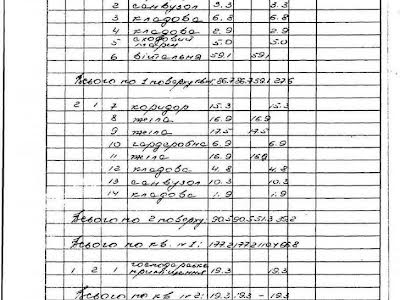 2 санвузол 3.3 3.3
3 кладова 6.8 6.8
4 кладова 2.9 2.9
5 сходовий марш 5.0 5.0
6 вітальня 59.1 59.1
Всього по 1 поверху
2 1 7 коридор 15.3 15.3
8 жила 16.9 16.9
9 жила 17.5 17.5
10 гардеробна 6.9 6.9
11 жила 16.9 16.9
12 кладова 4.8 4.8
13 санвузол 10.3 10.3
14 кладова 1.9 1.9
Всього по 2 поверху: 90.5 90.5 51.3 39.2
Всього по кв. №1: 177.2 177.2 110.4 66.8
1 2 1 господарське приміщення 19.3 19.3
Всього по кв №2: 19.3 19.3 - 19.3